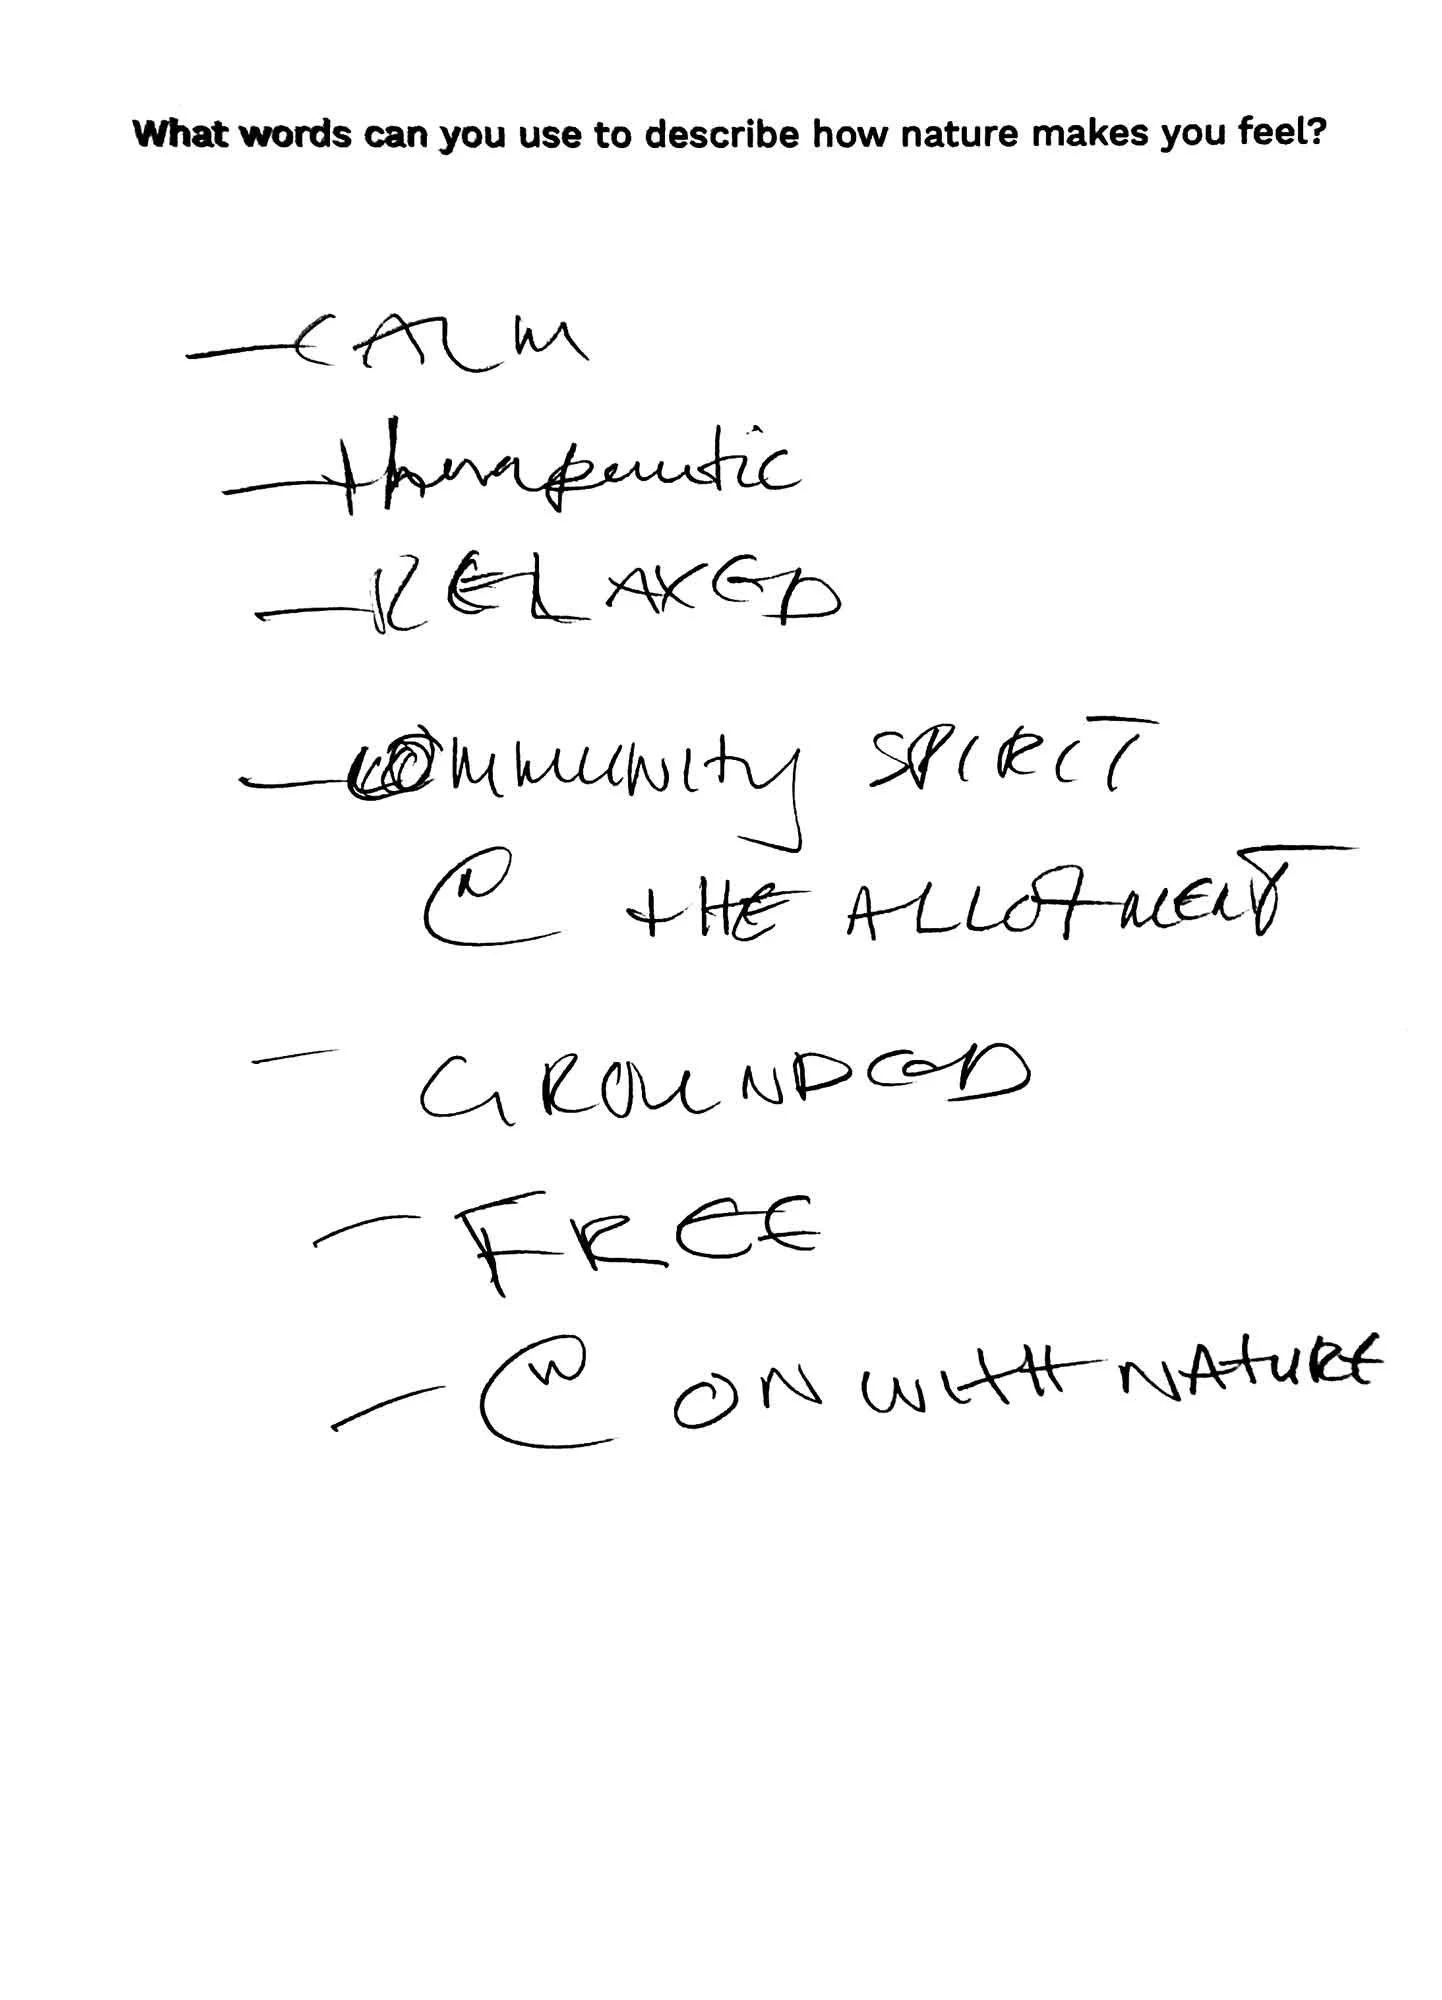 What words can you use to describe how nature makes you feel?
- CALM
- therapeutic
- RELAXED
- COMMUNITY SPIRIT
@ THE ALLOTMENT
- GROUNDED
- FREE
- @ ON WITH NATURE